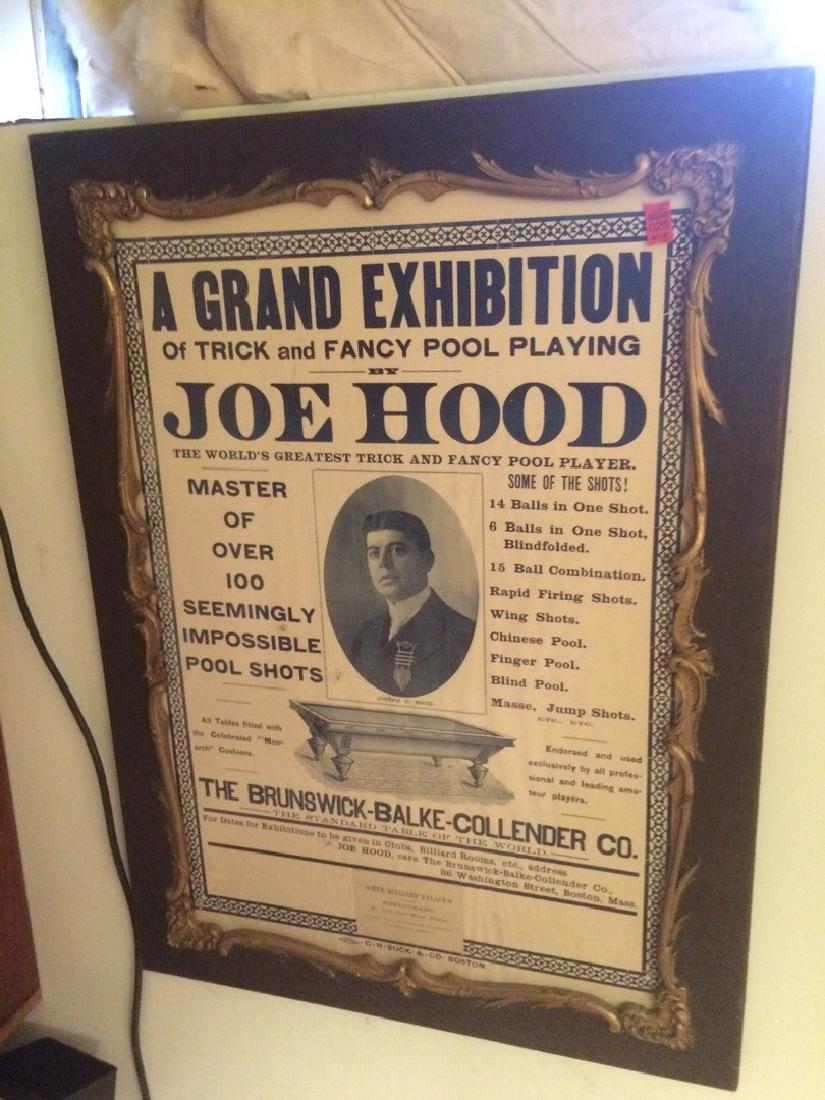 A GRAND EXHIBITION
Of TRICK and FANCY POOL PLAYING
BY
JOE HOOD
THE WORLD'S GREATEST TRICK AND FANCY POOL PLAYER.
MASTER
OF
OVER
100
SEEMINGLY
IMPOSSIBLE
POOL SHOTS
JOSEPH C. HOOD
SOME OF THE SHOTS!
14 Balls in One Shot.
6 Balls in One Shot,
Blindfolded.
15 Ball Combination.
Rapid Firing Shots.
Wing Shots.
Chinese Pool.
Finger Pool.
Blind Pool.
Masse, Jump Shots.
ETC., ETC.
All Tables fitted with
the Celebrated "Mon-
arch" Cushions.
Endorsed and used
exclusively by all profes-
sional and leading ama-
teur players.
THE BRUNSWICK-BALKE-COLLENDER CO.
THE STANDARD TABLE OF THE WORLD.
For Dates for Exhibitions to be given in Clubs, Billiard Rooms, etc., address
JOE HOOD, care The Brunswick-Balke-Collender Co.,
86 Washington Street, Boston, Mass.
BILLIARD PALACE
G. H. BUCK & CO. BOSTON
025